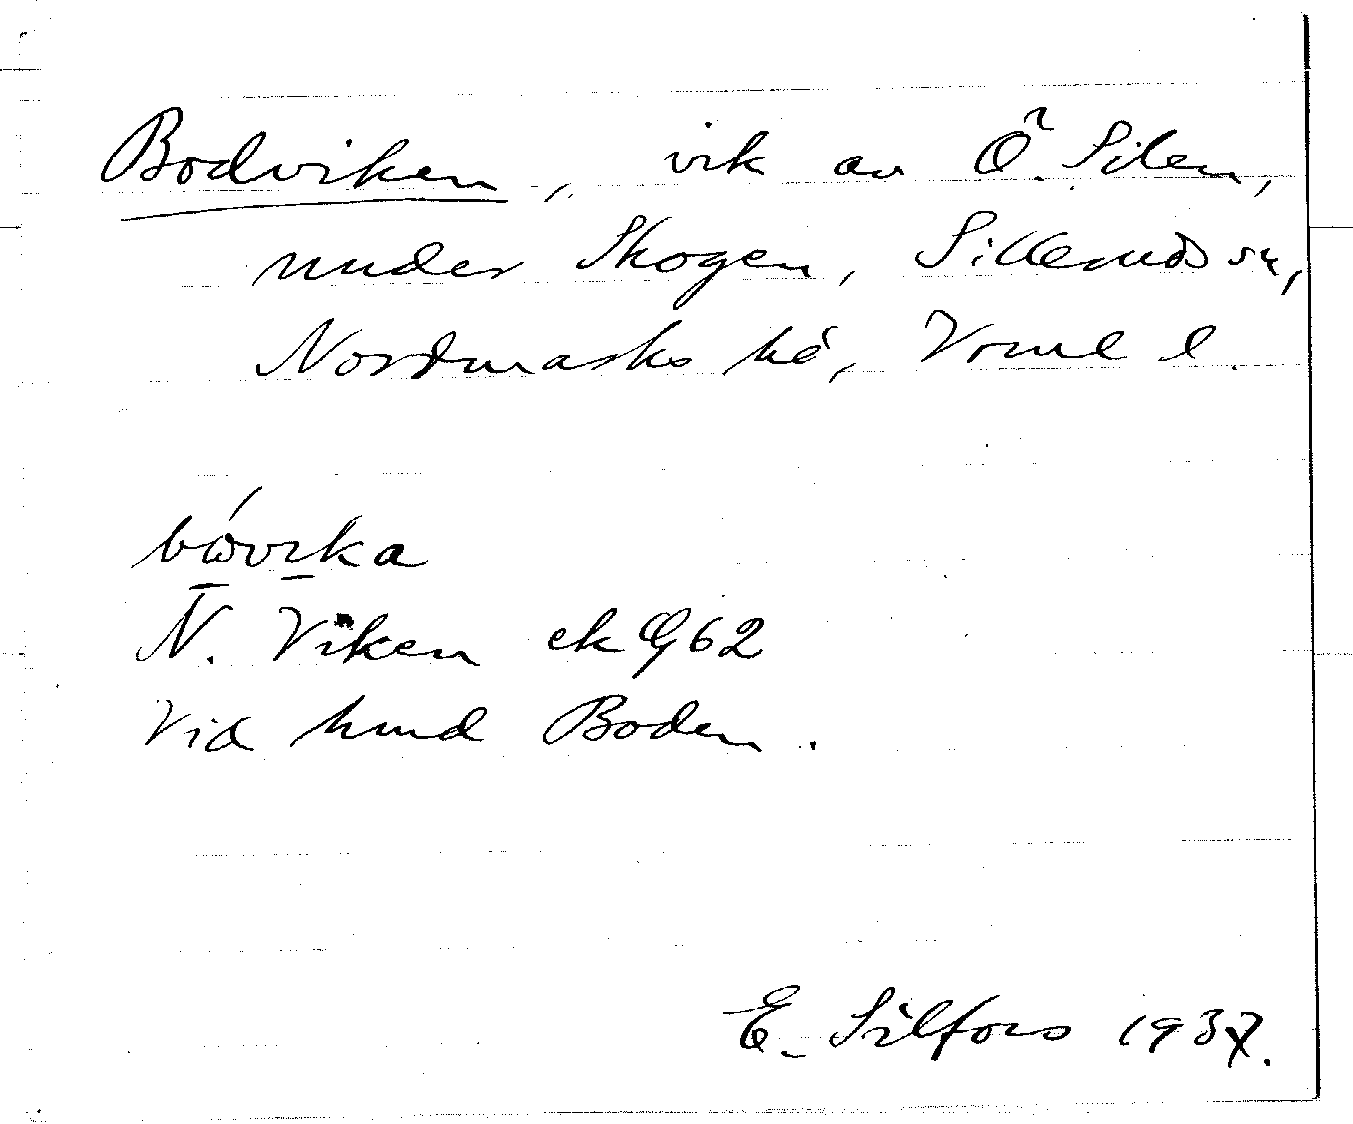 Bodviken, vik av Ö. Silen,
under Skogen, Silleruds sn,
Nordmarks hd, Vrml l.
bówıka
N. Viken ek Q62
Vid hmd Boden.
E. Silfors 1937.